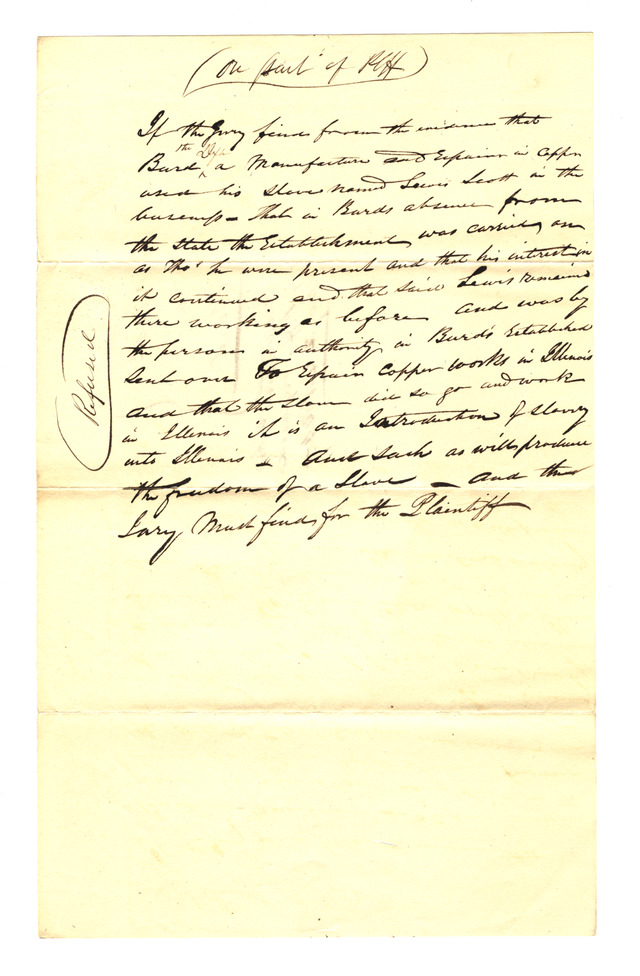 (On part of Plff)
If the Jury find from the evidence that
the Dft
Burd, a Manufacture and Repairer in Copper
used his slave named Lewis Scott in the
business – That in Burds absence from
the State the Establishment was carried on
as Tho' he were present and that his interest in
it continued and that said Lewis remained
there working as before and was by
the persons in authority in Burd's Established
sent over To Repair Copper works in Illinois
and that the slave did so go and work
in Illinois it is an Introduction of slavery
into Illinois – And such as will produce
the freedom of a Slave – And the
Jury Must find for the Plaintiff
Refused